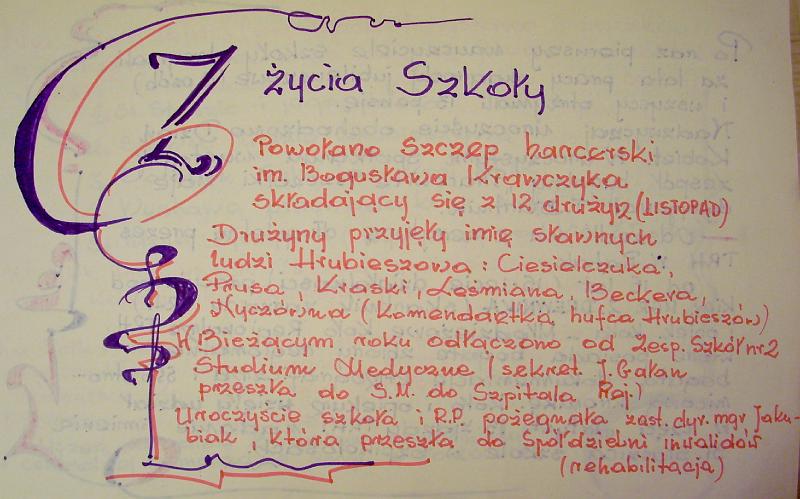 Z życia Szkoły
Powołano Szczep harcerski
im. Bogusława Krawczyka
składający się z 12 drużyn (LISTOPAD)
Drużyny przyjęły imię sławnych
ludzi Hrubieszowa: Ciesielczuka,
Prusa, Kraski, Leśmiana, Beckera,
Nyczówna (Komendantka hufca Hrubieszów)
W Bieżącym roku odłączono od Zesp. Szkół nr 2
Studium Medyczne (sekret. J. Gałan
przeszła do S.M. do Szpitala Raj.)
Uroczyście szkoła i R.P. pożegnała zast. dyr. mgr Jaku-
biak, która przeszła do Spółdzielni inwalidów
(rehabilitacja)